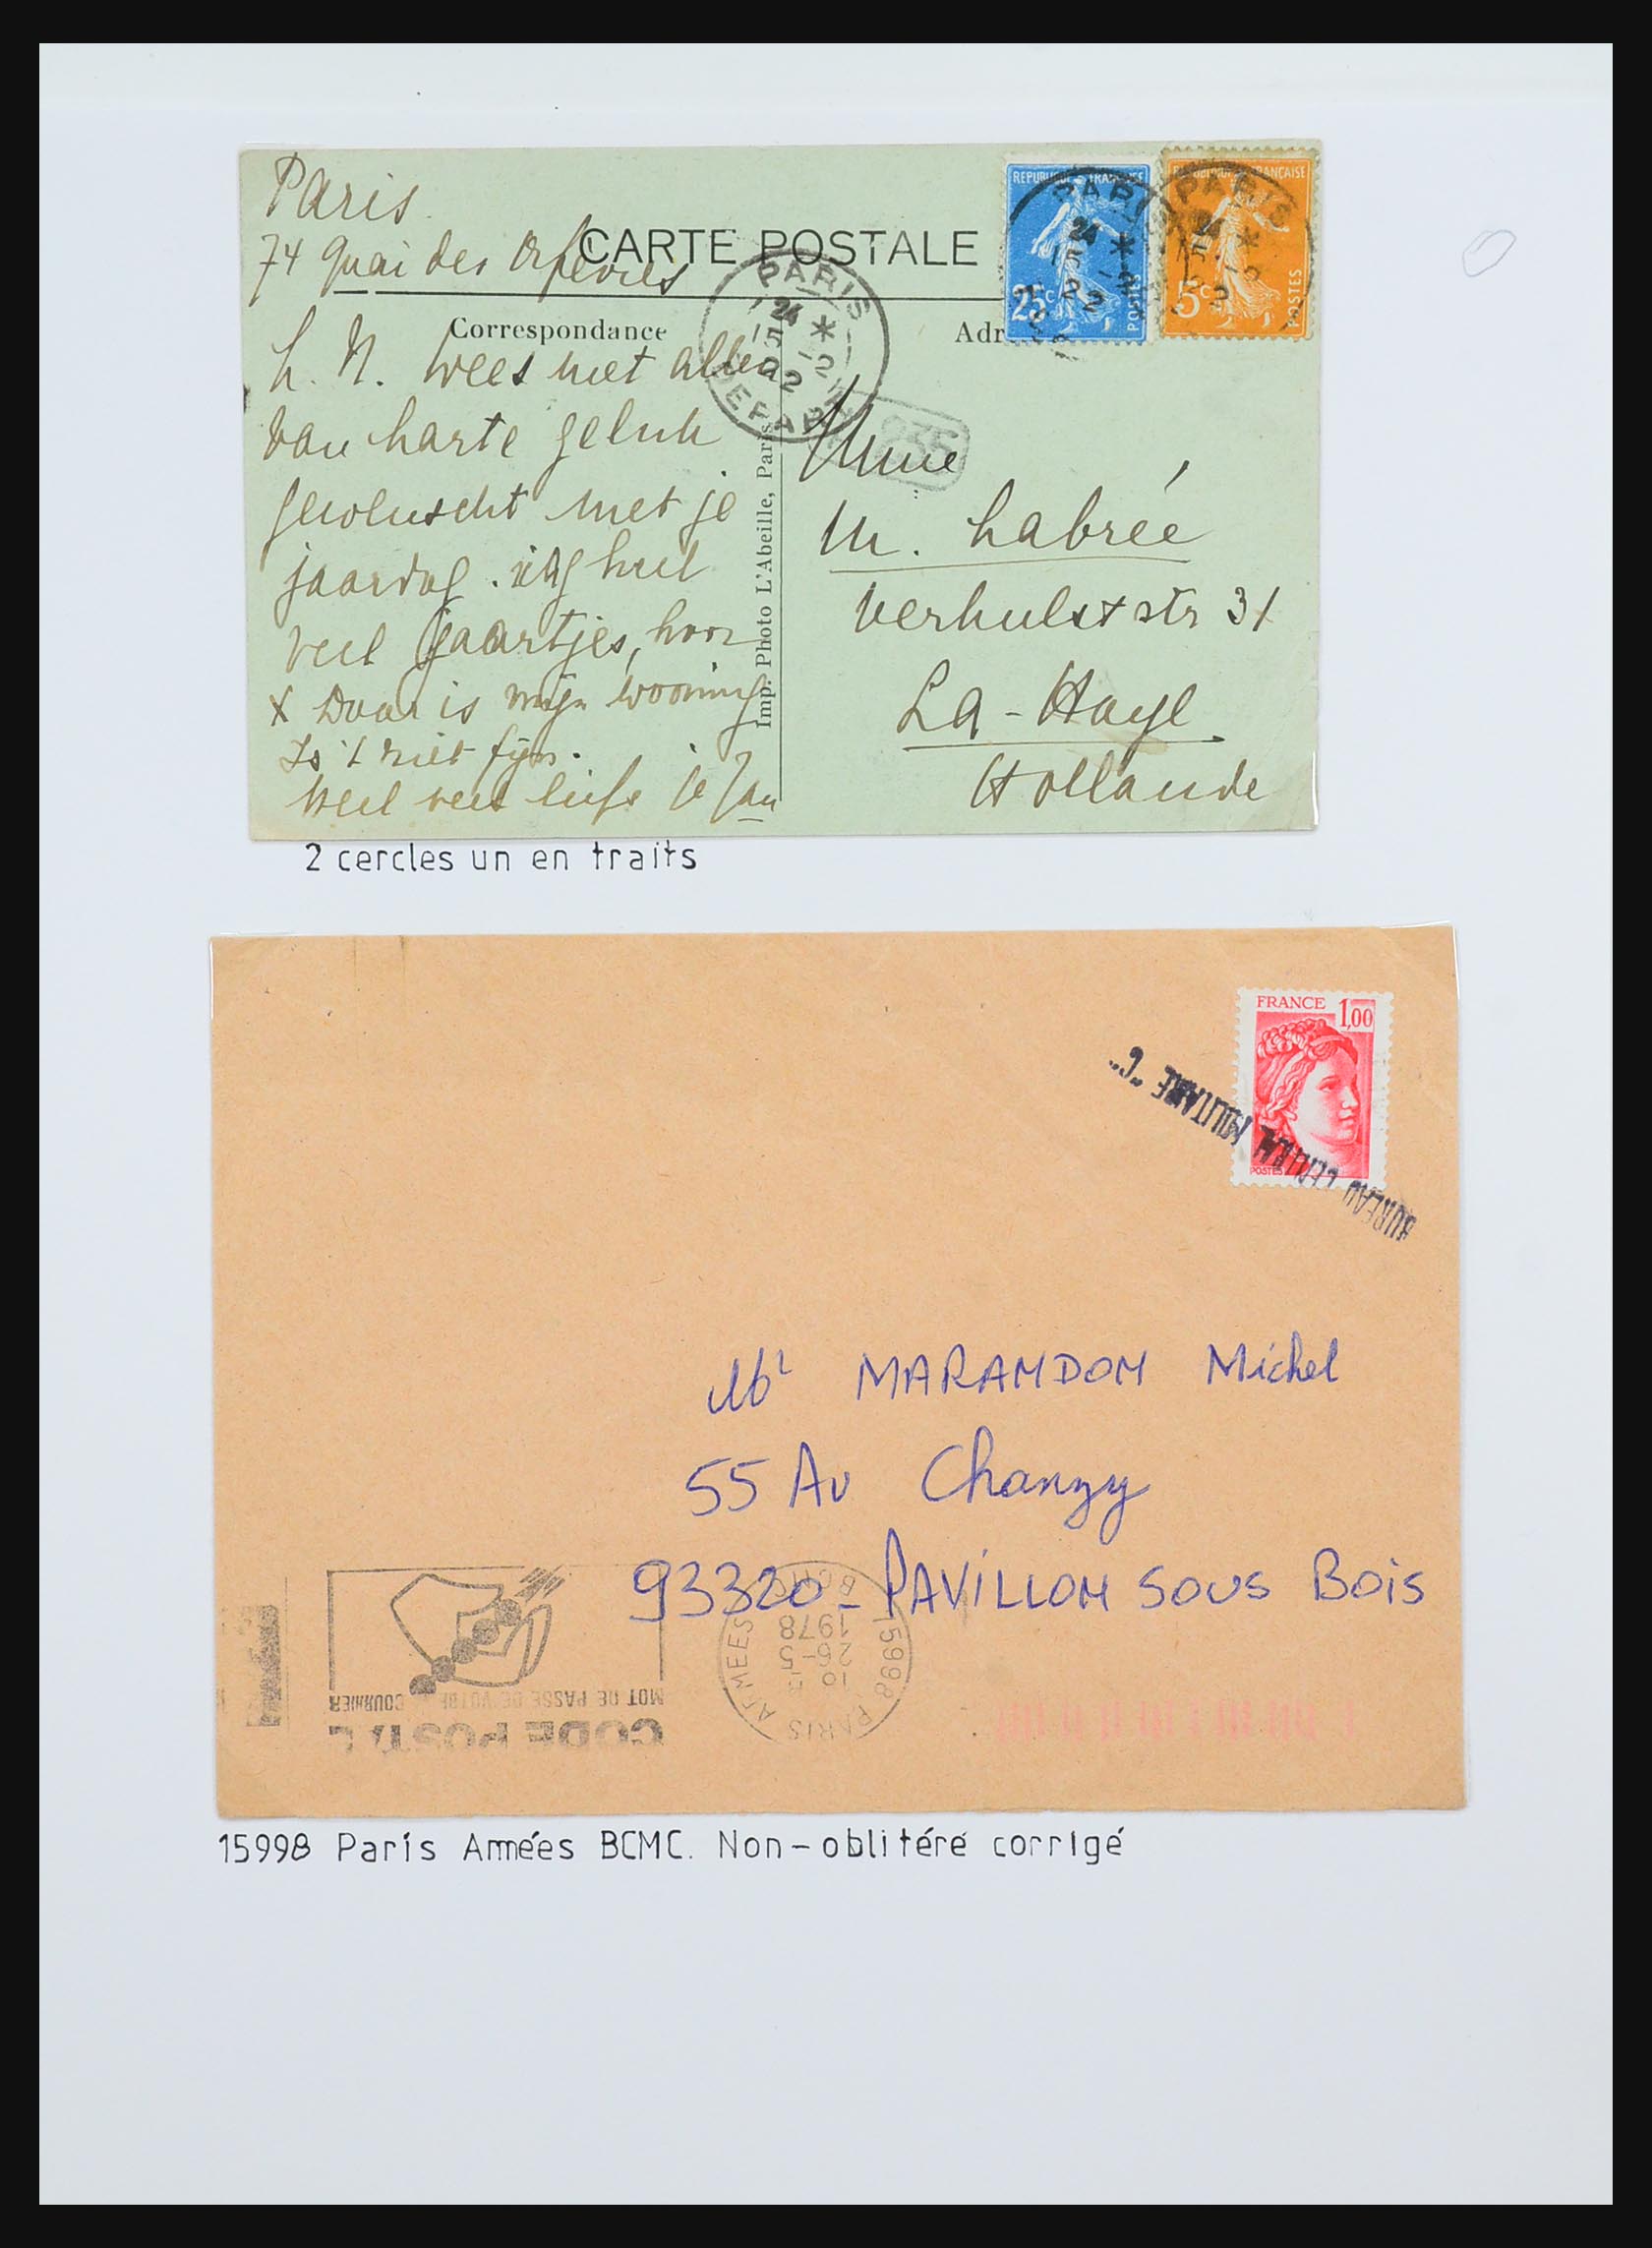 Paris
74 Quai des Orfèvres
CARTE POSTALE
Correspondance
Adr
REPUBLIQUE FRANÇAISE
25c
POSTES
REPUBLIQUE FRANÇAISE
5c
POSTES
PARIS
24 *
15 -2
22
DEPART
PARIS
24 *
PARIS
24 *
235
L. N. Wees met alles
van harte geluk
gewenscht met je
jaardag. nog heel
veel jaartjes, hoor
X Daar is mijn wooning
Is 't niet fijn.
Heel veel liefs je Jan
Imp. Photo L'Abeille, Paris
Mme
M. Labrée
Verhulststr 31
La-Haye
Hollande
2 cercles un en traits
FRANCE 1,00
POSTES
BUREAU CENTRAL MILITAIRE "C"
Mr MARANDON Michel
55 Av Chanzy
93320 - PAVILLON SOUS BOIS
15998 PARIS ARMEES
BCMC
10 H
26-5
1978
CODE POSTAL
MOT DE PASSE DE VOTRE COURRIER
15998 París Armées BCMC. Non-oblitéré corrigé